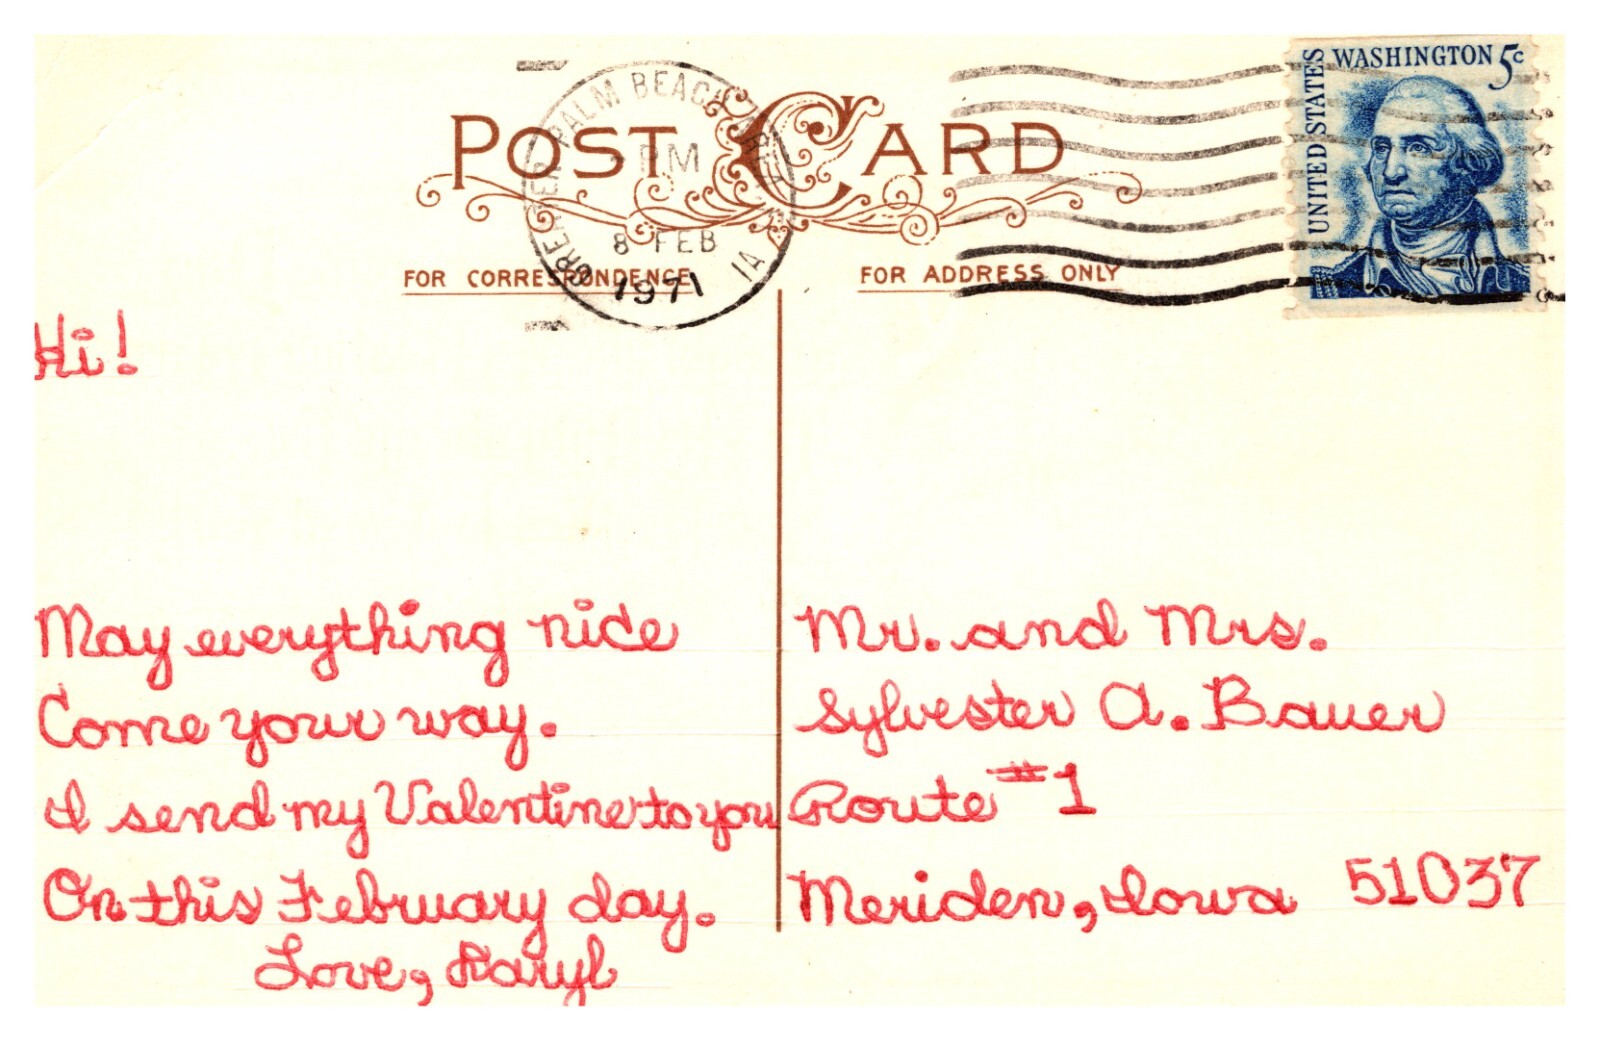 POST CARD
GREATER PALM BEACH AREA
PM
8 FEB
1971
FOR CORRESPONDENCE
FOR ADDRESS ONLY
UNITED STATES
WASHINGTON 5c
Hi!
May everything nice
Come your way.
I send my Valentine to you
On this February day.
Love, Karyl
Mr. and Mrs.
Sylvester A. Bauer
Route #1
Meriden, Iowa 51037